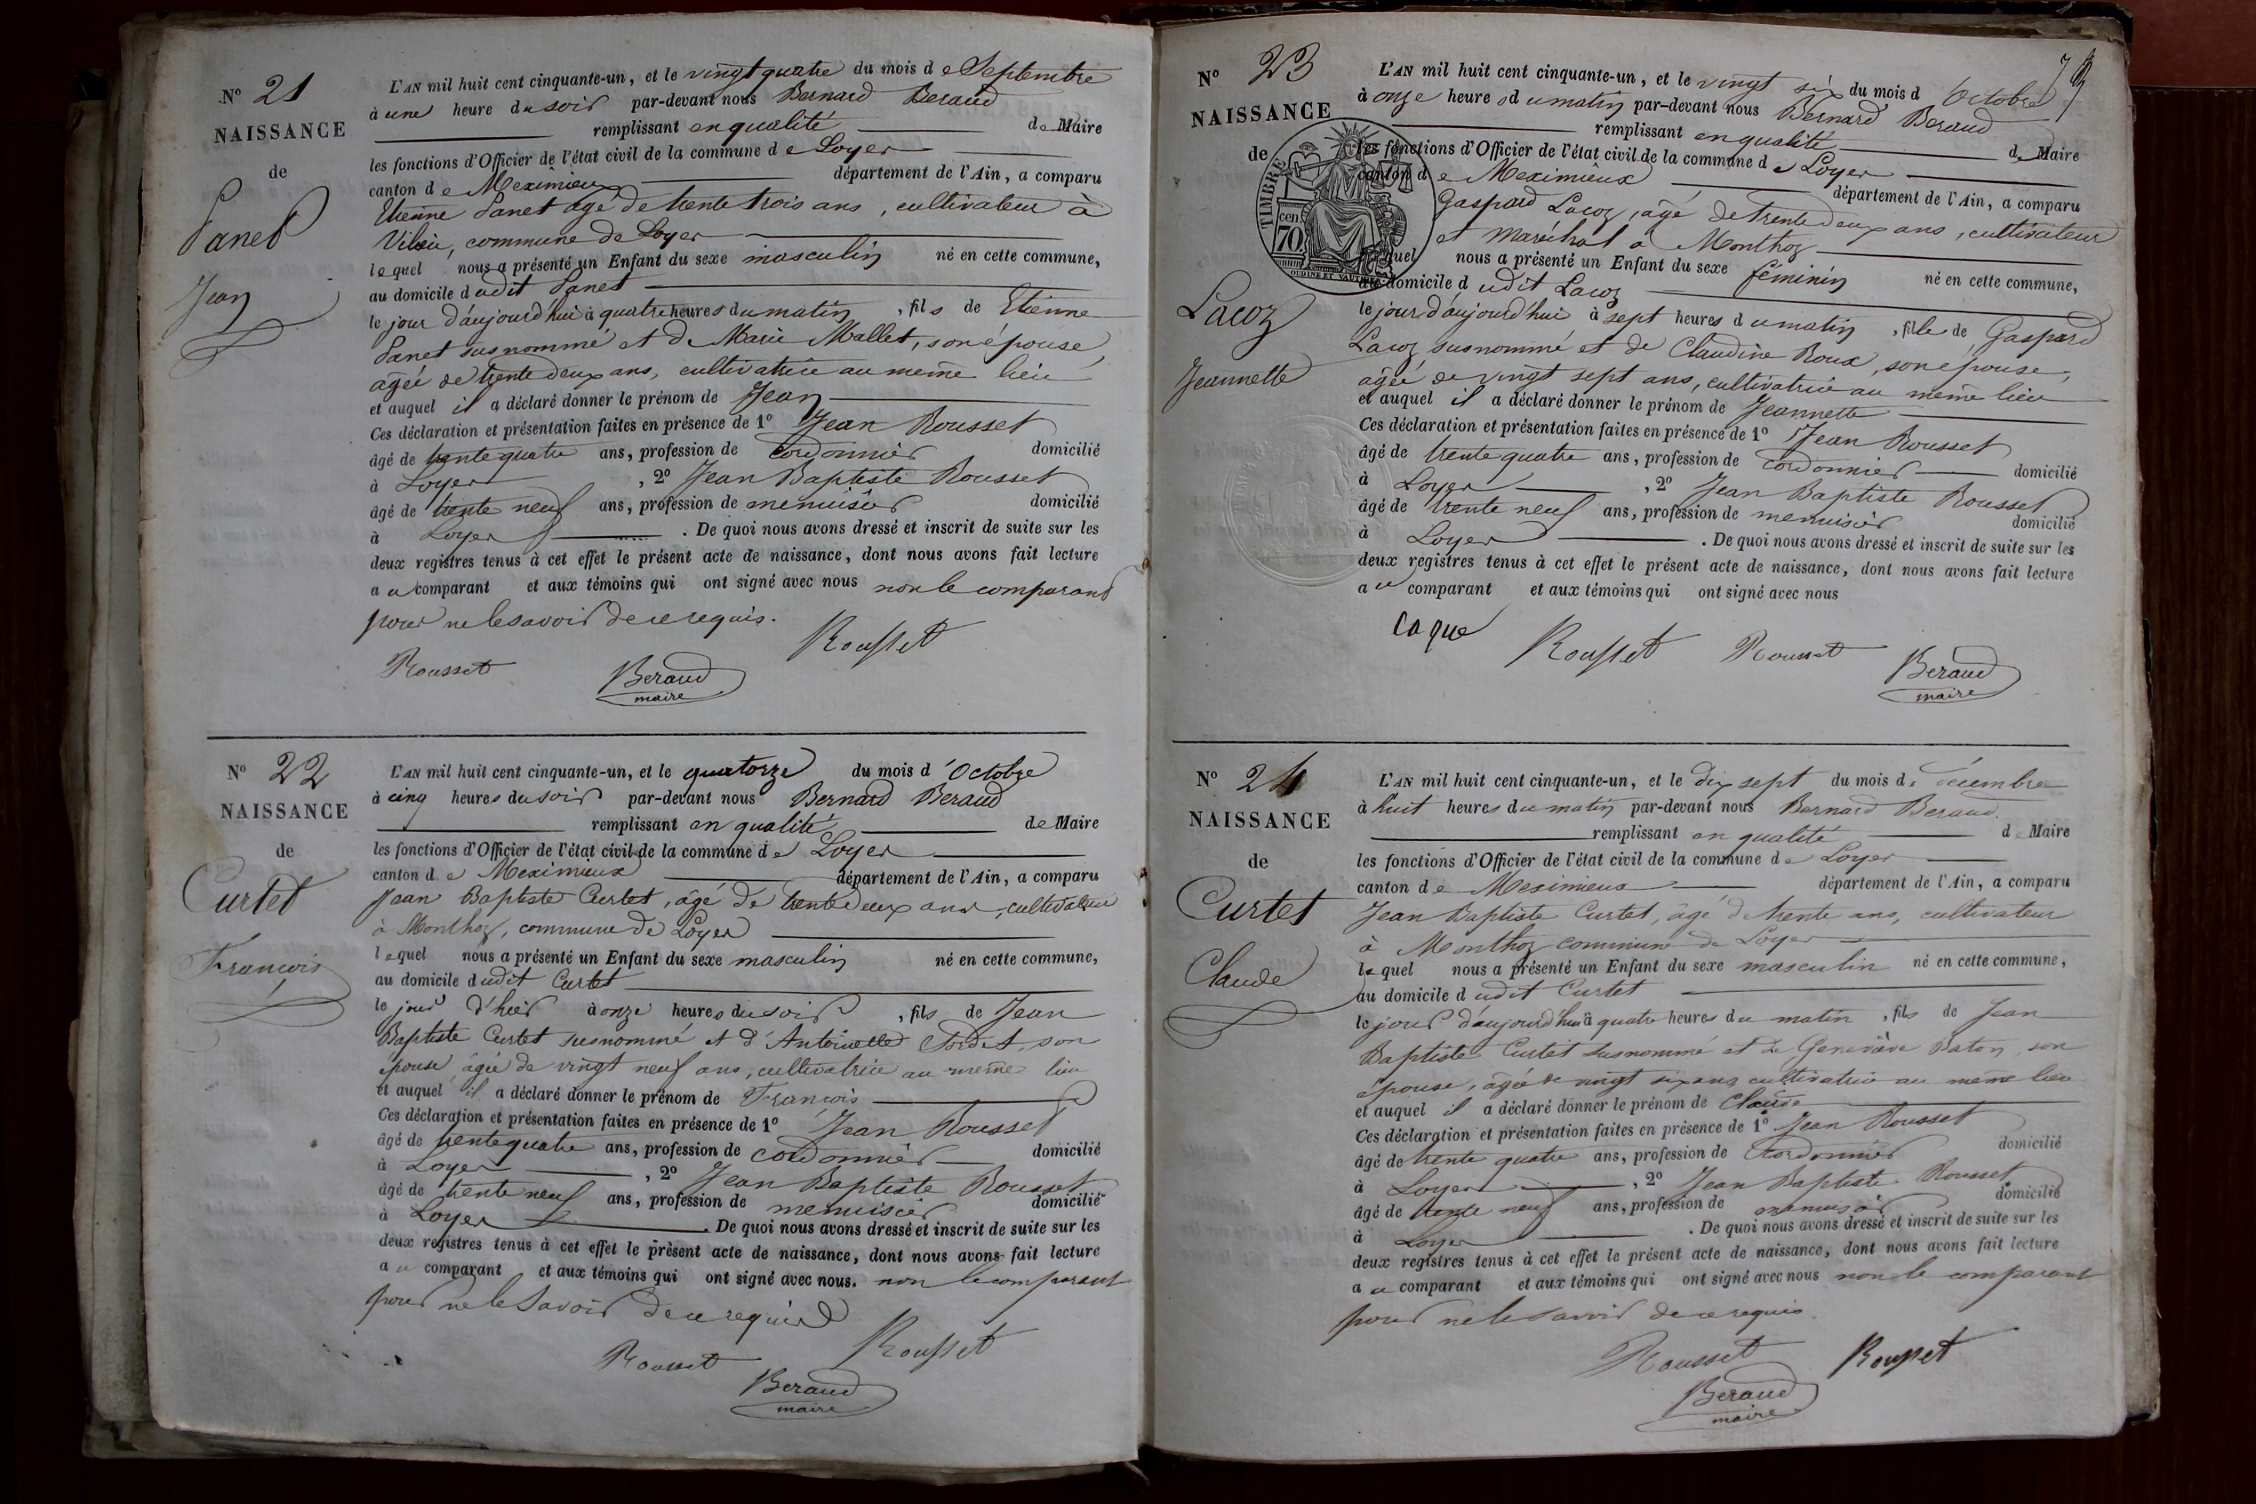 N° 21
NAISSANCE
de
Panet
Jean
L'AN mil huit cent cinquante-un, et le vingt quatre du mois de Septembre
à une heure du soir par-devant nous Bernard Beraud
remplissant en qualité de Maire
les fonctions d'Officier de l'état civil de la commune de Loyes
canton de Meximieux département de l'Ain, a comparu
Etienne Panet âgé de trente trois ans, cultivateur à
commune de Loyes
lequel nous a présenté un Enfant du sexe masculin né en cette commune,
au domicile dudit Panet
le jour d'aujourd'hui à quatre heures du matin, fils de Etienne
Panet susnommé et de Marie Mallet, son épouse,
agée de trente deux ans, cultivatrice au même lieu
et auquel il a déclaré donner le prénom de Jean
Ces déclaration et présentation faites en présence de 1° Jean Rousset
âgé de trente quatre ans, profession de cordonnier domicilié
à Loyes, 2° Jean Baptiste Rousset
âgé de trente neuf ans, profession de menuisier domicilié
à Loyes. De quoi nous avons dressé et inscrit de suite sur les
deux registres tenus à cet effet le présent acte de naissance, dont nous avons fait lecture
au comparant et aux témoins qui ont signé avec nous non le comparant
pour ne le savoir de ce requis.
Rousset
Rousset
Beraud
maire
N° 22
NAISSANCE
de
Curtet
François
L'AN mil huit cent cinquante-un, et le quatorze du mois d'Octobre
à cinq heures du soir par-devant nous Bernard Beraud
remplissant en qualité de Maire
les fonctions d'Officier de l'état civil de la commune de Loyes
canton de Meximieux département de l'Ain, a comparu
Jean Baptiste Curtet, âgé de trente deux ans, cultivateur
à Monthoz, commune de Loyes
lequel nous a présenté un Enfant du sexe masculin né en cette commune,
au domicile dudit Curtet
le jour d'hier à onze heures du soir, fils de Jean
Baptiste Curtet susnommé et d'Antoinette son
épouse, âgée de vingt neuf ans, cultivatrice au même lieu
et auquel il a déclaré donner le prénom de François
Ces déclaration et présentation faites en présence de 1° Jean Rousset
âgé de trente quatre ans, profession de cordonnier domicilié
à Loyes, 2° Jean Baptiste Rousset
âgé de trente neuf ans, profession de menuisier domicilié
à Loyes. De quoi nous avons dressé et inscrit de suite sur les
deux registres tenus à cet effet le présent acte de naissance, dont nous avons fait lecture
au comparant et aux témoins qui ont signé avec nous. non le comparant
pour ne le savoir de ce requis
Rousset
Rousset
Beraud
maire
N° 23
NAISSANCE
de
Lacoz
Jeannette
TIMBRE
cen
70
OUDINÉ ET VAUTHIER
L'AN mil huit cent cinquante-un, et le vingt six du mois d Octobre
à onze heures du matin par-devant nous Bernard Beraud
remplissant en qualité de Maire
les fonctions d'Officier de l'état civil de la commune de Loyes
canton de Meximieux département de l'Ain, a comparu
Gaspard Lacoz, âgé de trente deux ans, cultivateur
et maréchal a Monthoz
lequel nous a présenté un Enfant du sexe féminin né en cette commune,
au domicile dudit Lacoz
le jour d'aujourd'hui à sept heures du matin, fille de Gaspard
Lacoz susnommé et de Claudine Roux, son épouse,
agée de vingt sept ans, cultivatrice au même lieu
et auquel il a déclaré donner le prénom de Jeannette
Ces déclaration et présentation faites en présence de 1° Jean Rousset
âgé de trente quatre ans, profession de cordonnier domicilié
à Loyes, 2° Jean Baptiste Rousset
âgé de trente neuf ans, profession de menuisier domicilié
à Loyes. De quoi nous avons dressé et inscrit de suite sur les
deux registres tenus à cet effet le présent acte de naissance, dont nous avons fait lecture
au comparant et aux témoins qui ont signé avec nous
Rousset Rousset
Beraud
maire
N° 24
NAISSANCE
de
Curtet
Claude
L'AN mil huit cent cinquante-un, et le dix sept du mois de décembre
à huit heures du matin par-devant nous Bernard Beraud
remplissant en qualité de Maire
les fonctions d'Officier de l'état civil de la commune de Loyes
canton de Meximieux département de l'Ain, a comparu
Jean Baptiste Curtet, âgé de trente ans, cultivateur
à Monthoz commune de Loyes
lequel nous a présenté un Enfant du sexe masculin né en cette commune,
au domicile dudit Curtet
le jour d'aujourd'hui à quatre heures du matin, fils de Jean
Baptiste Curtet susnommé et de Geneviève son
épouse, âgée de vingt six ans cultivatrice au même lieu
et auquel il a déclaré donner le prénom de Claude
Ces déclaration et présentation faites en présence de 1° Jean Rousset
âgé de trente quatre ans, profession de Cordonnier domicilié
à Loyes, 2° Jean Baptiste Rousset
âgé de trente neuf ans, profession de menuisier domicilié
à Loyes. De quoi nous avons dressé et inscrit de suite sur les
deux registres tenus à cet effet le présent acte de naissance, dont nous avons fait lecture
au comparant et aux témoins qui ont signé avec nous non le comparant
pour ne le savoir de ce requis.
Rousset Rousset
Beraud
maire